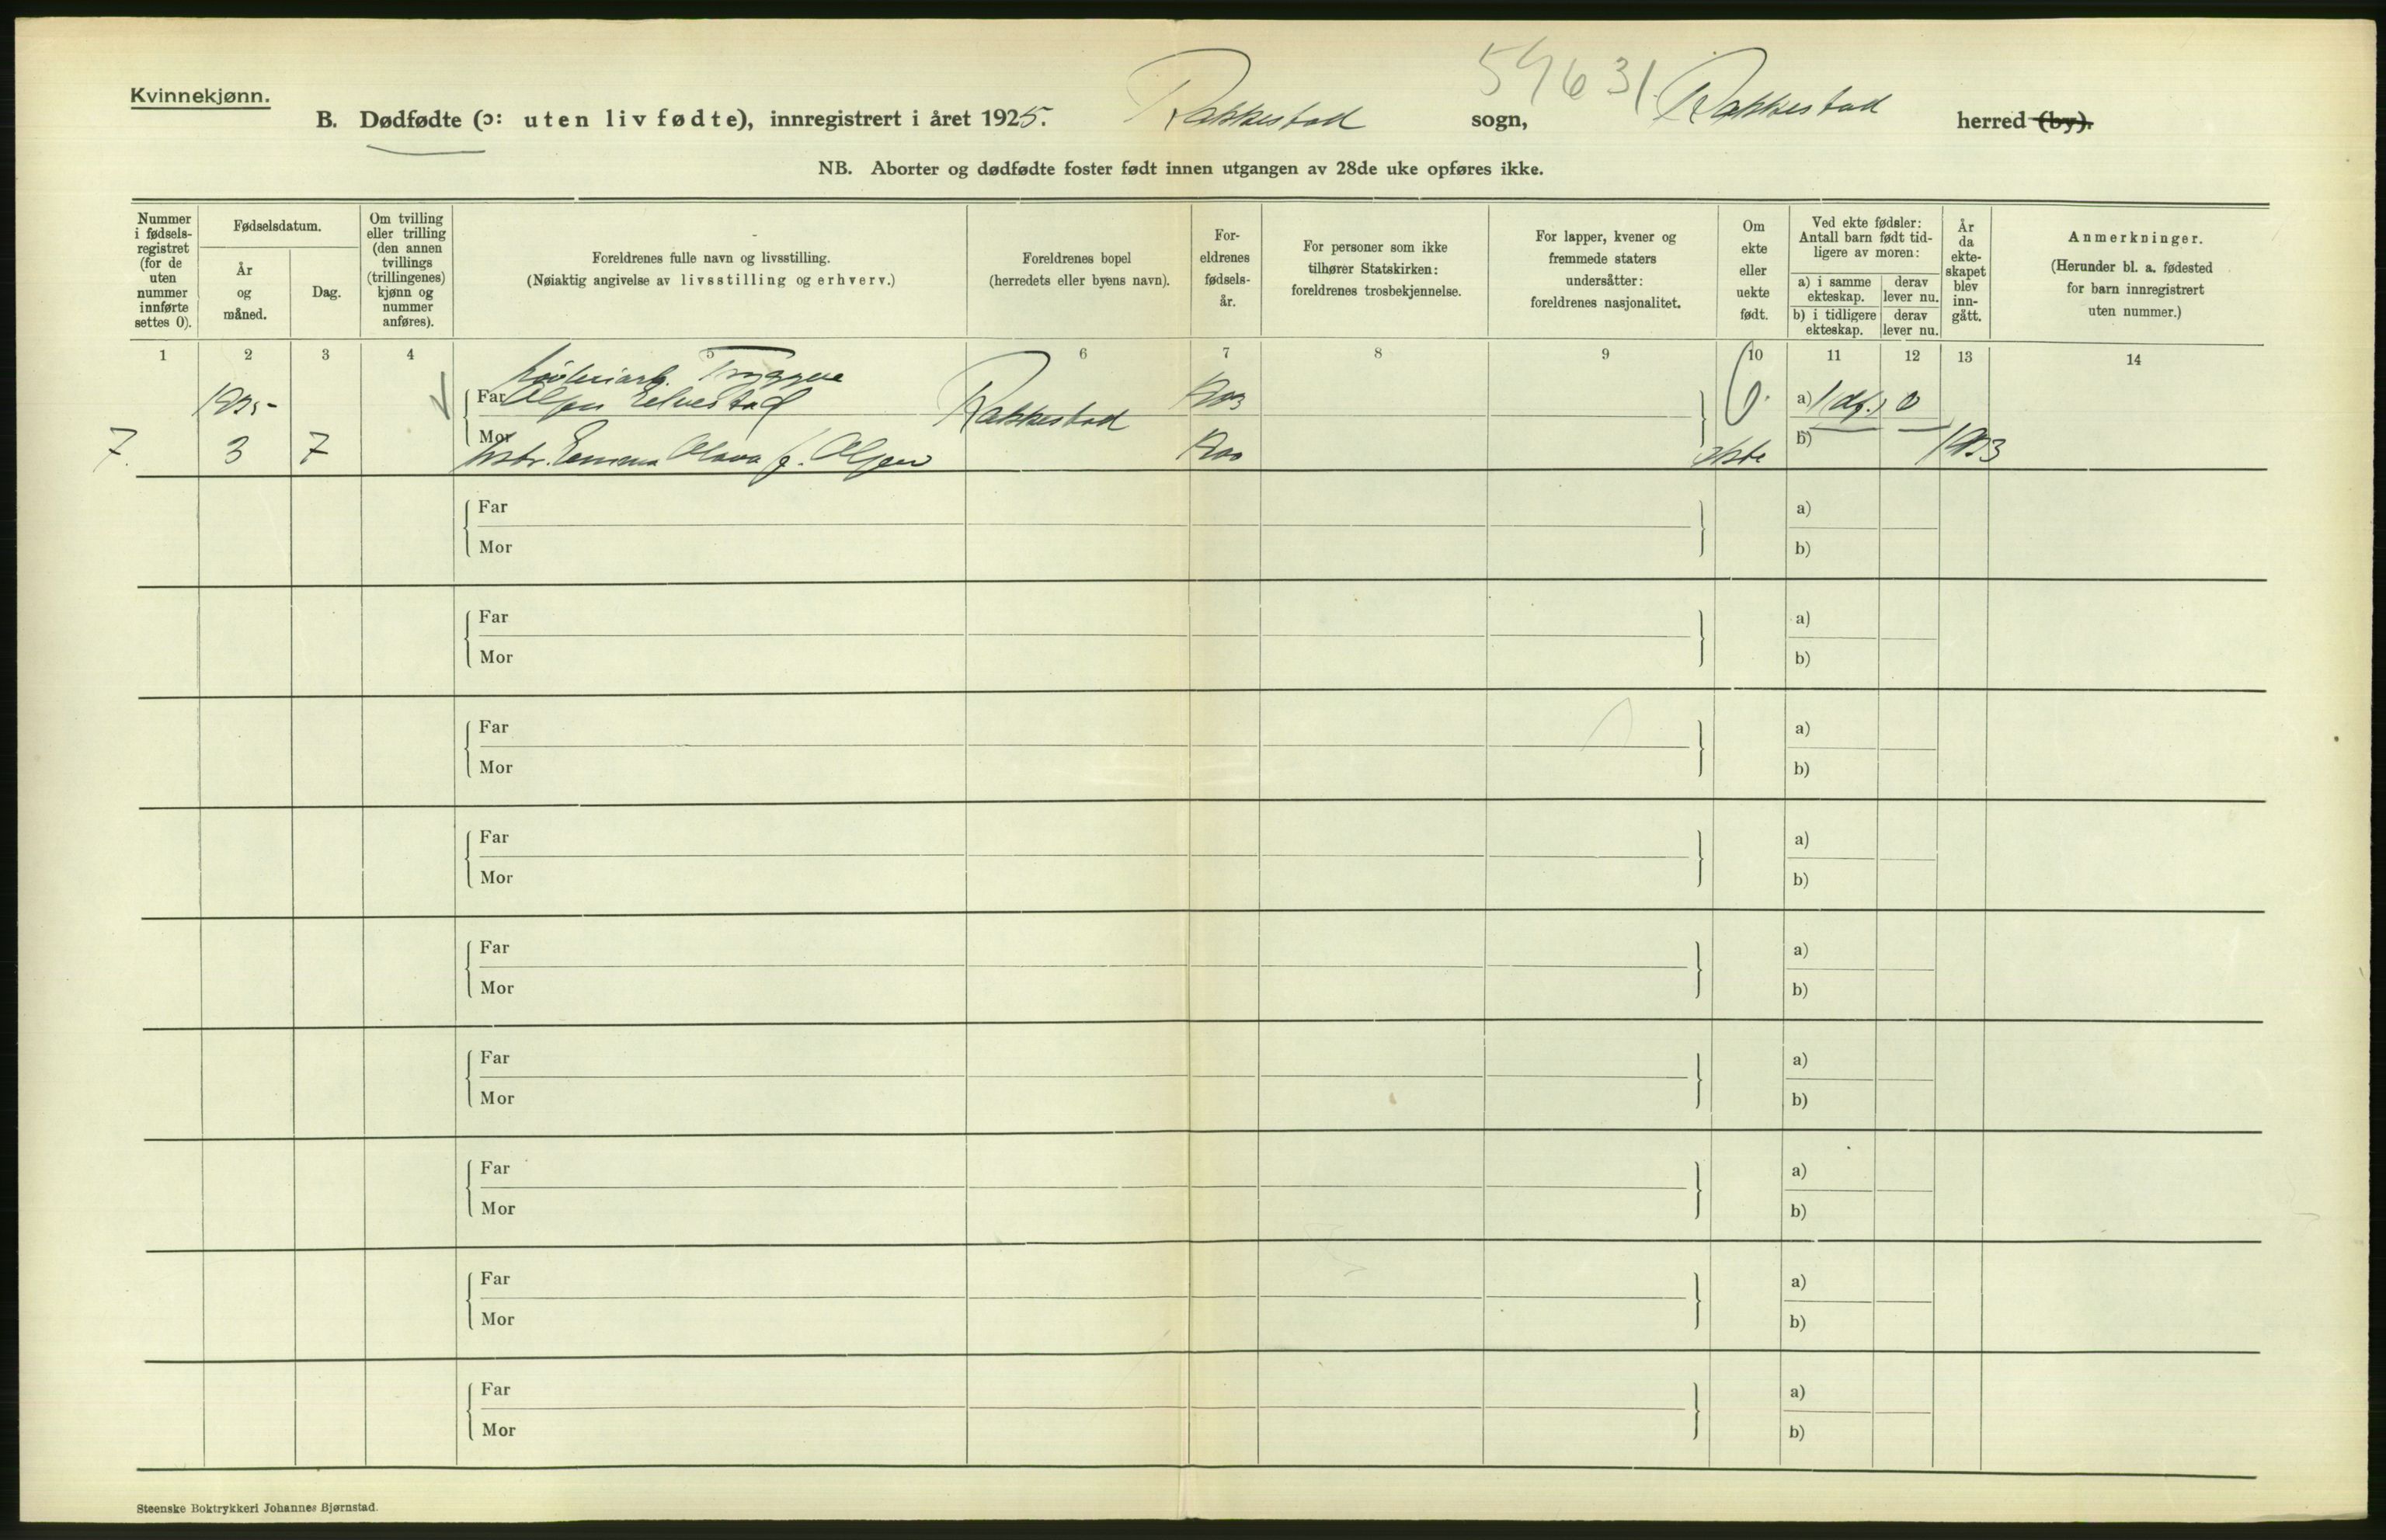 Kvinnekjønn.
59631.
B. Dødfødte (ɔ: uten liv fødte), innregistrert i året 1925. Rakkestad sogn, Rakkestad herred (by).
NB. Aborter og dødfødte foster født innen utgangen av 28de uke opføres ikke.
Nummer i fødsels-registret (for de uten nummer innførte settes 0).
Fødselsdatum.
År og måned.
Dag.
Om tvilling eller trilling (den annen tvillings (trillingenes) kjønn og nummer anføres).
Foreldrenes fulle navn og livsstilling.
(Nøiaktig angivelse av livsstilling og erhverv.)
Foreldrenes bopel
(herredets eller byens navn).
For-eldrenes fødsels-år.
For personer som ikke tilhører Statskirken: foreldrenes trosbekjennelse.
For lapper, kvener og fremmede staters undersåtter: foreldrenes nasjonalitet.
Om ekte eller uekte født.
Ved ekte fødsler: Antall barn født tid-ligere av moren:
a) i samme ekteskap.
derav lever nu.
b) i tidligere ekteskap.
derav lever nu.
År da ekte-skapet blev inn-gått.
Anmerkninger.
(Herunder bl. a. fødested for barn innregistrert uten nummer.)
1 2 3 4 5 6 7 8 9 10 11 12 13 14
Tryggve
1925 Far Olsen Elvestad Rakkestad a) 1 (df.) 0
7. 3 7 Mor Hstr. Emma Olava f. Olsen 1900 ekte b) 1923
Far a)
Mor b)
Far a)
Mor b)
Far a)
Mor b)
Far a)
Mor b)
Far a)
Mor b)
Far a)
Mor b)
Far a)
Mor b)
Far a)
Mor b)
Far a)
Mor b)
Steenske Boktrykkeri Johannes Bjørnstad.